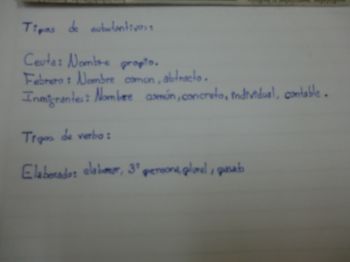 Tipos de substantivos:
Ceuta: Nombre propio.
Febrero: Nombre comun, abtracto.
Inmigrantes: Nombre común, concreto, individual, contable.
Tipos de verbo:
Elaborado: elaborar, 3ª persona, plural, pasado